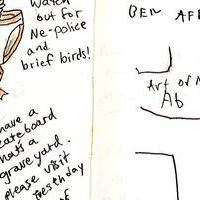 Watch
out for
Ne-police
and
brief birds!
have a
skateboard
thats a
graveyard.
please visit
of
BEN AF
Art or
Ab